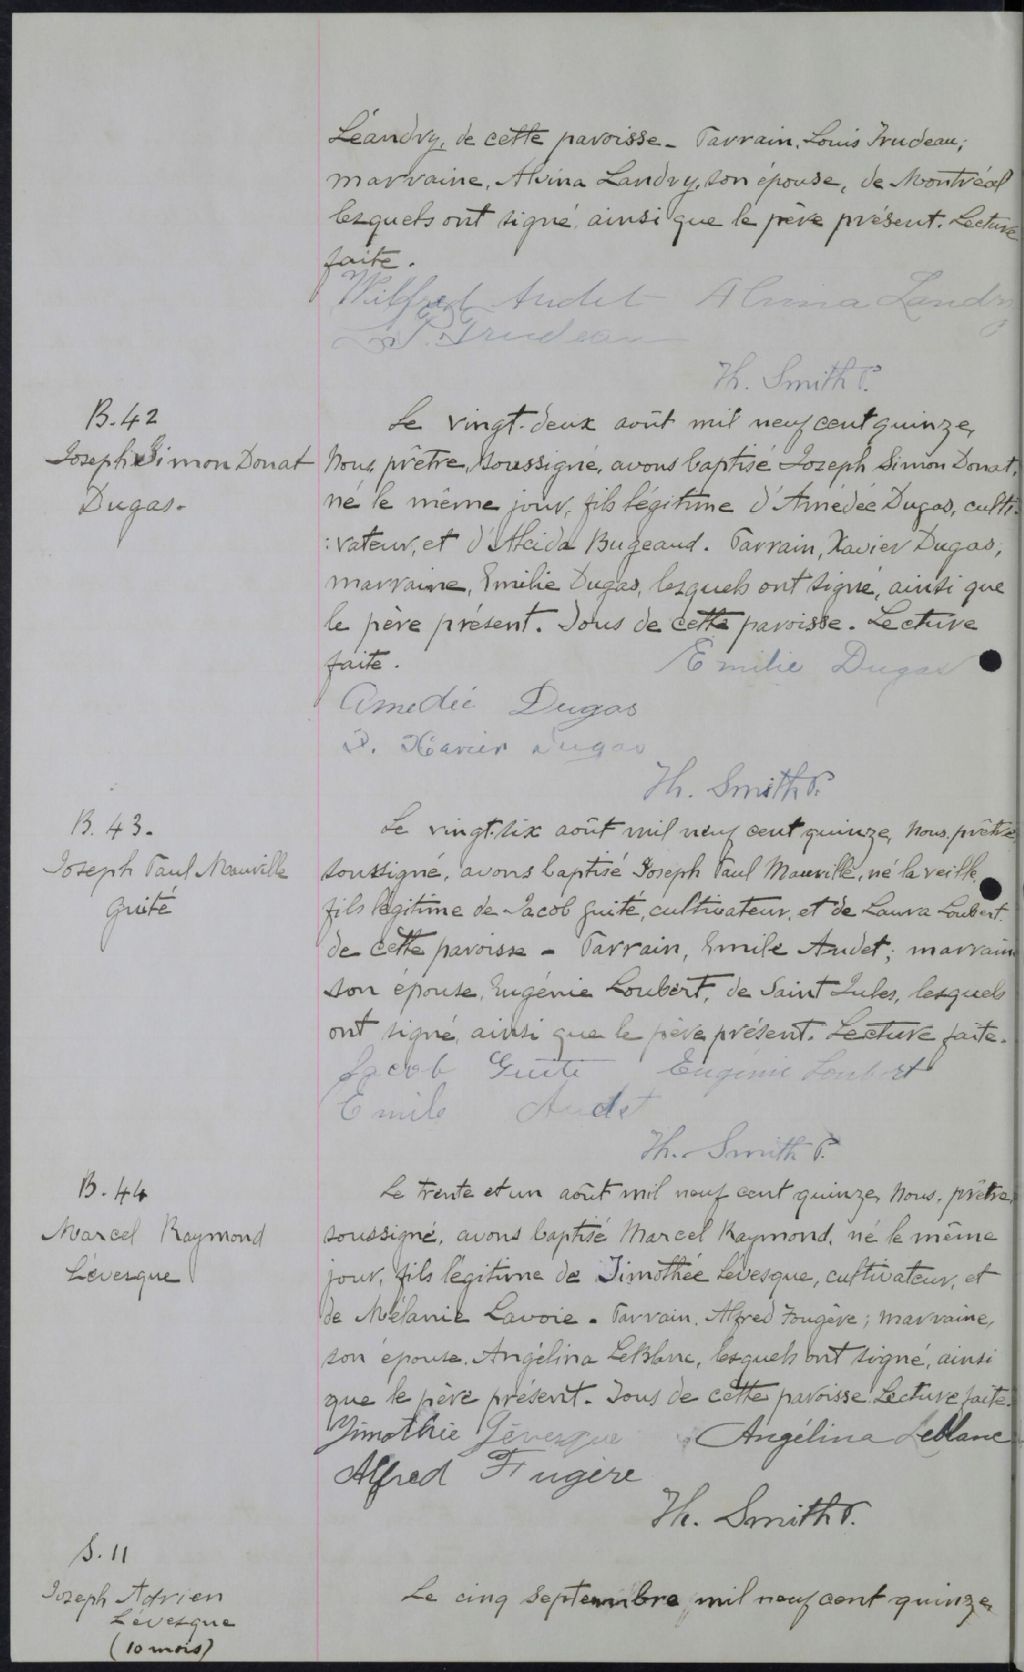 Léandry, de cette paroisse - Parrain, Louis Trudeau;
marraine, Alvina Landry, son épouse, de Montréal
lesquels ont signé ainsi que le père présent. Lecture
faite.
Wilfred Audet Alvina Landry
L. P. Trudeau
Th. Smith P.
B. 42
Joseph Simon Donat
Dugas.
Le vingt-deux août mil neuf cent quinze,
Nous, prêtre, soussigné, avons baptisé Joseph Simon Donat,
né le même jour, fils légitime d'Amédée Dugas, culti:
:vateur, et d'Alcida Bugeaud. Parrain, Xavier Dugas;
marraine, Emilie Dugas, lesquels ont signé, ainsi que
le père présent. Tous de cette paroisse. Lecture
faite.
Emilie Dugas
Amedée Dugas
Xavier Dugas
Th. Smith P.
B. 43.
Joseph Paul Mauville
Guité
Le vingt-six août mil neuf cent quinze, Nous, prêtre
soussigné, avons baptisé Joseph Paul Mauville, né la veille,
fils légitime de Jacob Guité, cultivateur, et de Laura Loubert
de cette paroisse - Parrain, Emile Audet; marraine
son épouse, Eugénie Loubert, de Saint Jules, lesquels
ont signé, ainsi que le père présent. Lecture faite.
Jacob Guité Eugénie Loubert
Emile Audet
Th. Smith P.
B. 44
Marcel Raymond
Lévesque
Le trente et un août mil neuf cent quinze, Nous, prêtre,
soussigné, avons baptisé Marcel Raymond, né le même
jour, fils légitime de Timothée Lévesque, cultivateur, et
de Mélanie Lavoie. Parrain, Alfred Fougère; marraine,
son épouse, Angélina LeBlanc, lesquels ont signé, ainsi
que le père présent. Tous de cette paroisse. Lecture faite.
Timothée Lévesque Angélina Leblanc
Alfred Fugère
Th. Smith P.
S. 11
Joseph Adrien
Lévesque
(10 mois)
Le cinq septembre, mil neuf cent quinze,